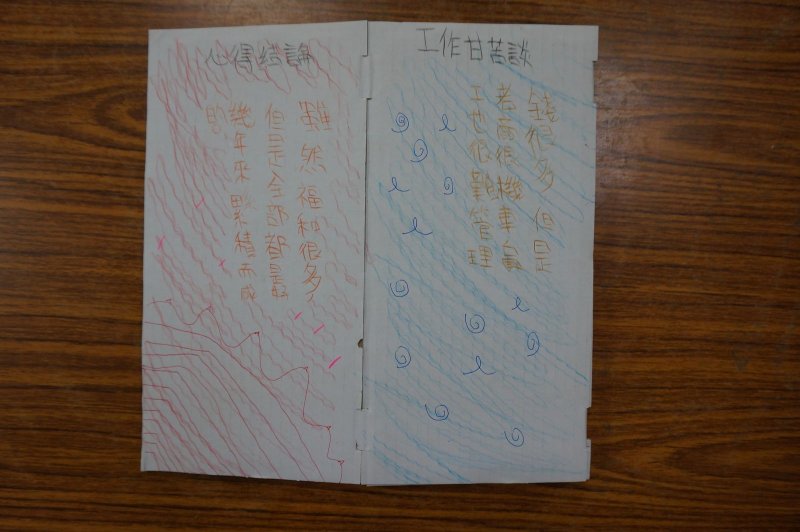 工作甘苦談
錢很多 但是
老闆很機車員
工也很難管理
心得結論
雖然福利很多,
但是全部都是
幾年來 累積而成
的。